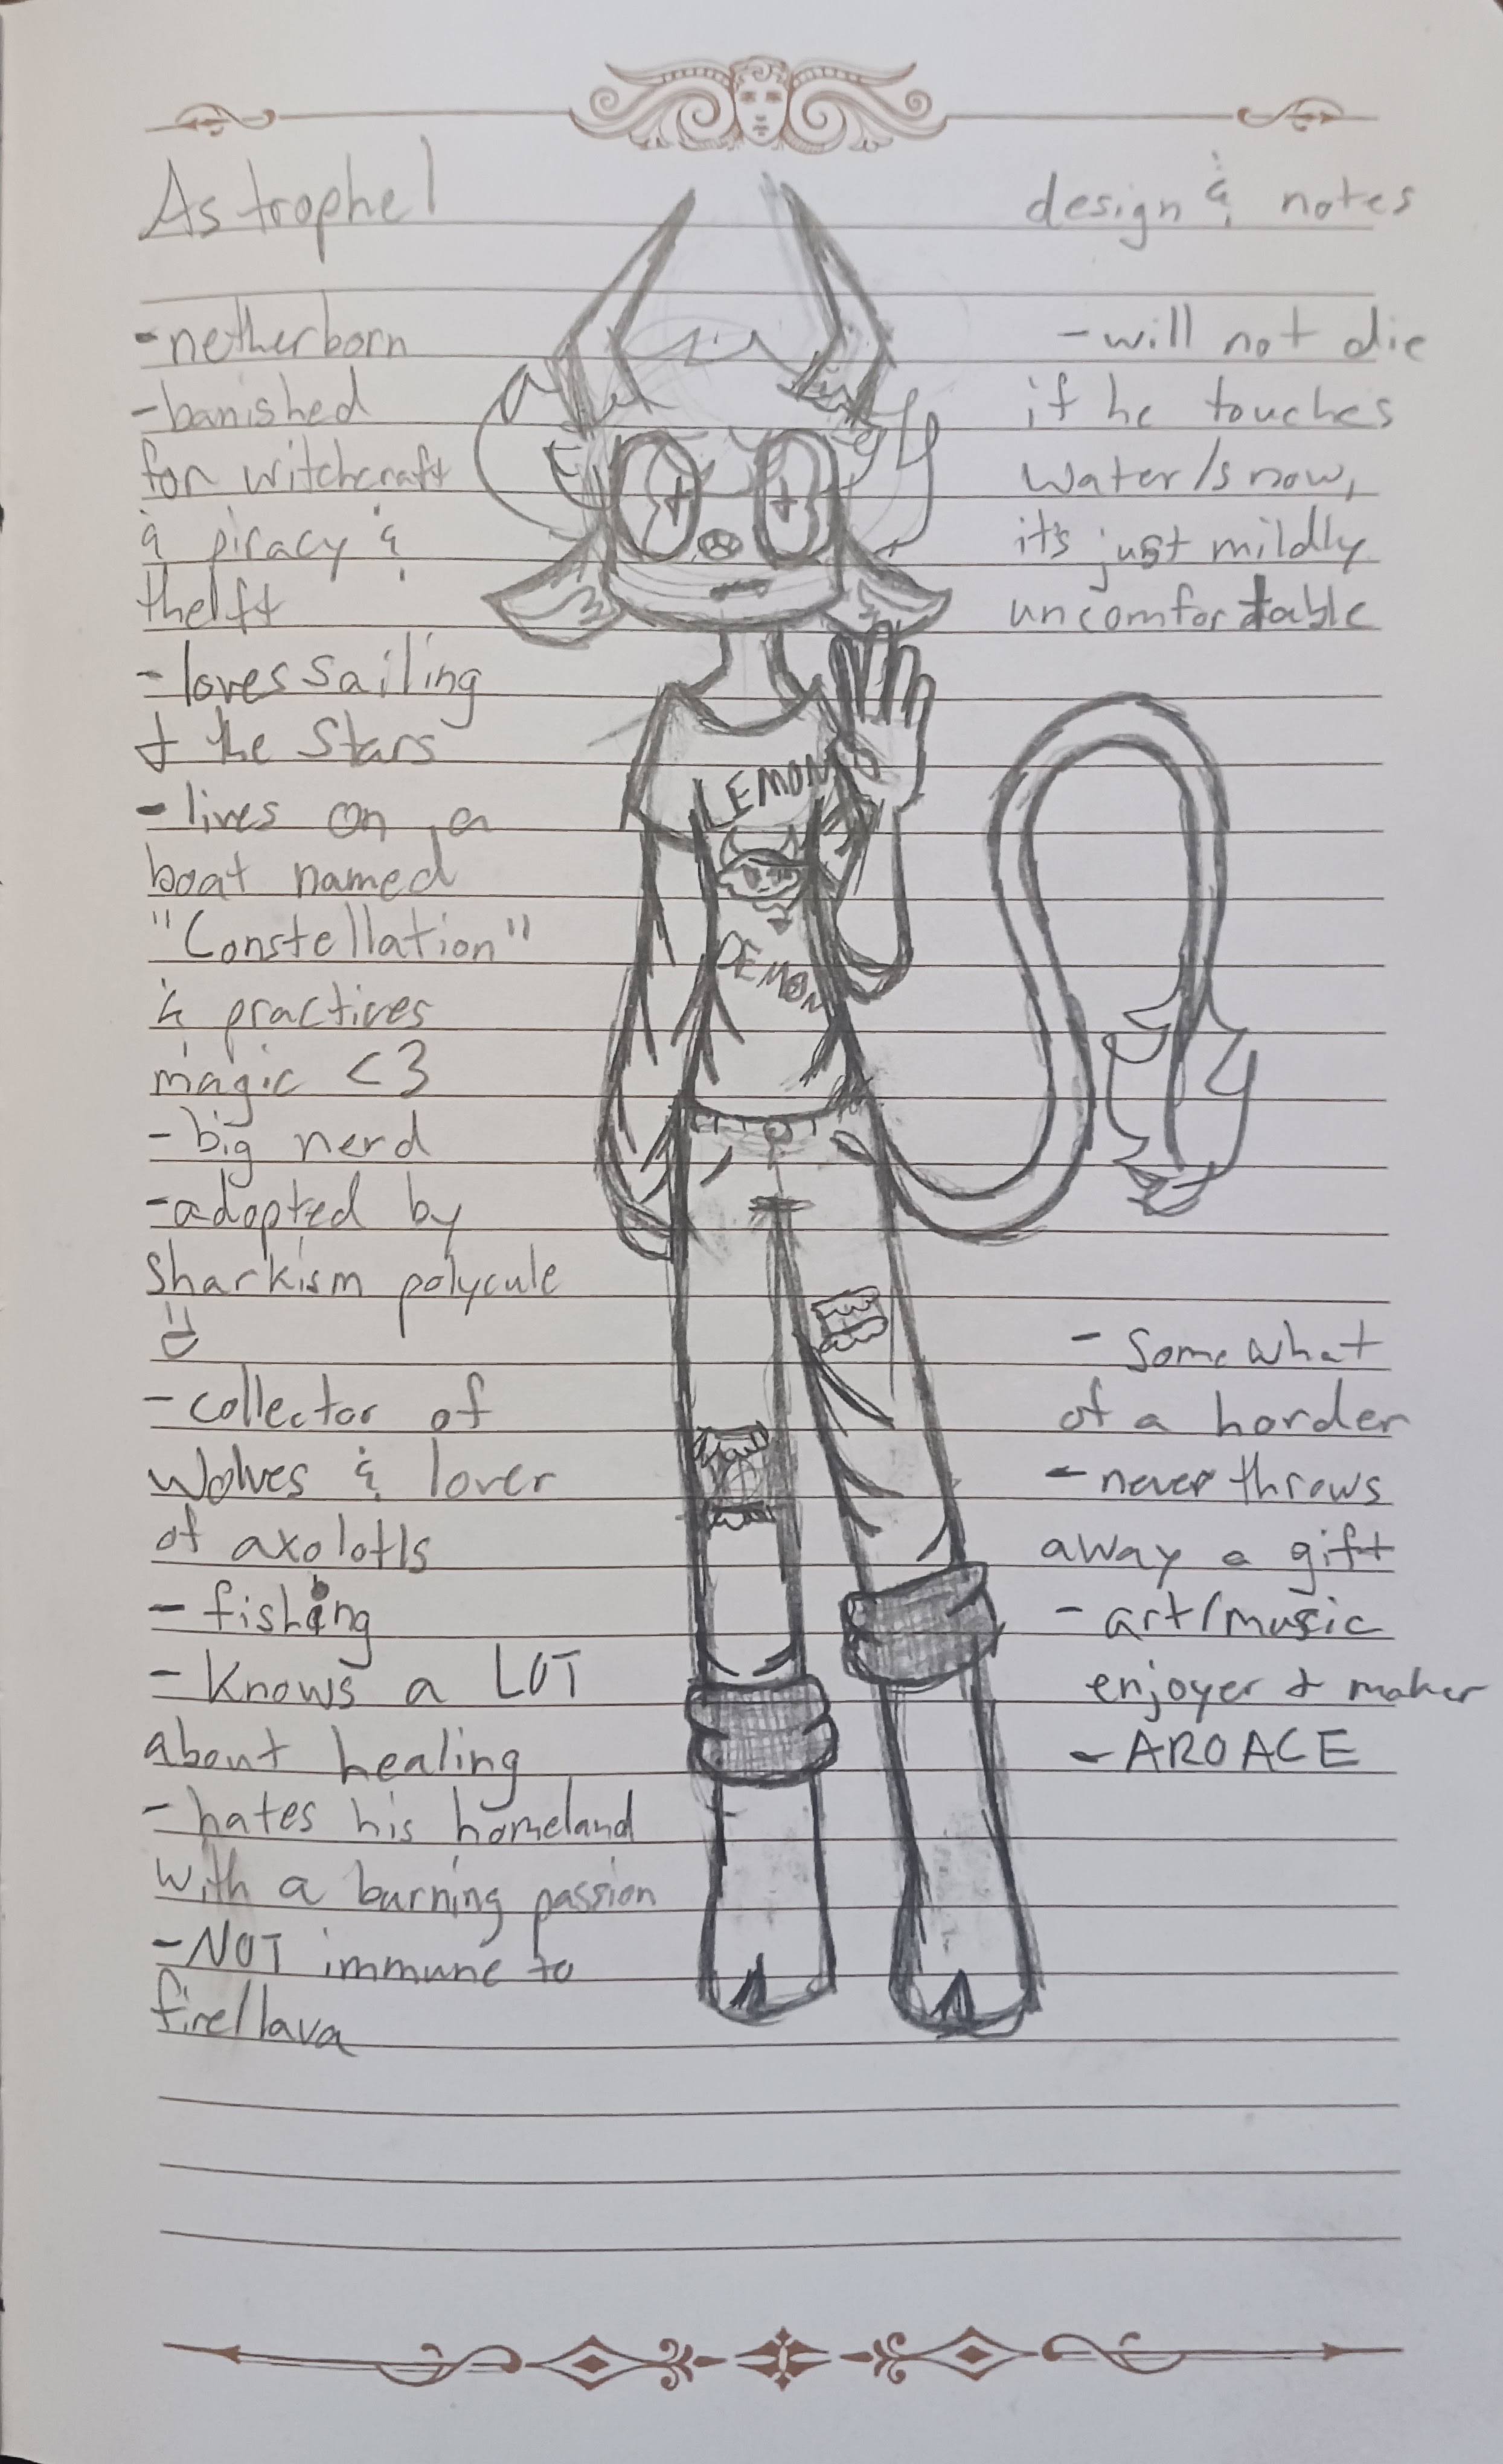 Astrophel
design & notes
- netherborn
- banished
for witchcraft
& piracy &
thelft
- loves sailing
& the stars
- lives on a
boat named
"Constellation"
& practices
magic <3
- big nerd
- adopted by
Sharkism polycule
:D
- collector of
wolves & lover
of axolotls
- fishing
- knows a LOT
about healing
- hates his homeland
with a burning passion
- NOT immune to
fire/lava
- will not die
if he touches
water/snow,
it's just mildly
uncomfortable
- somewhat
of a horder
- never throws
away a gift
- art/music
enjoyer & maker
- AROACE
LEMON
DEMON